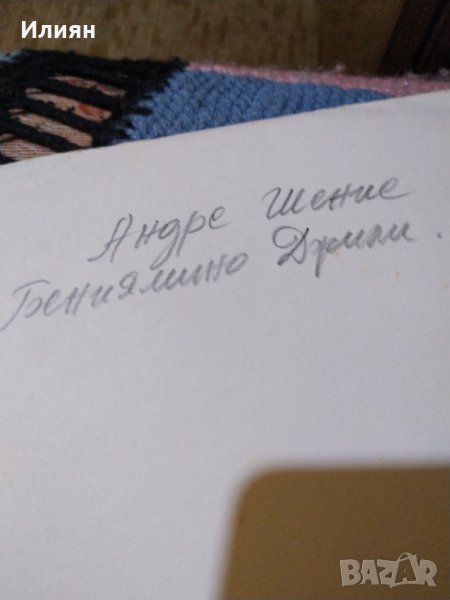 Илиян
Андре Шение
Бениямино Джили.
BAZAR